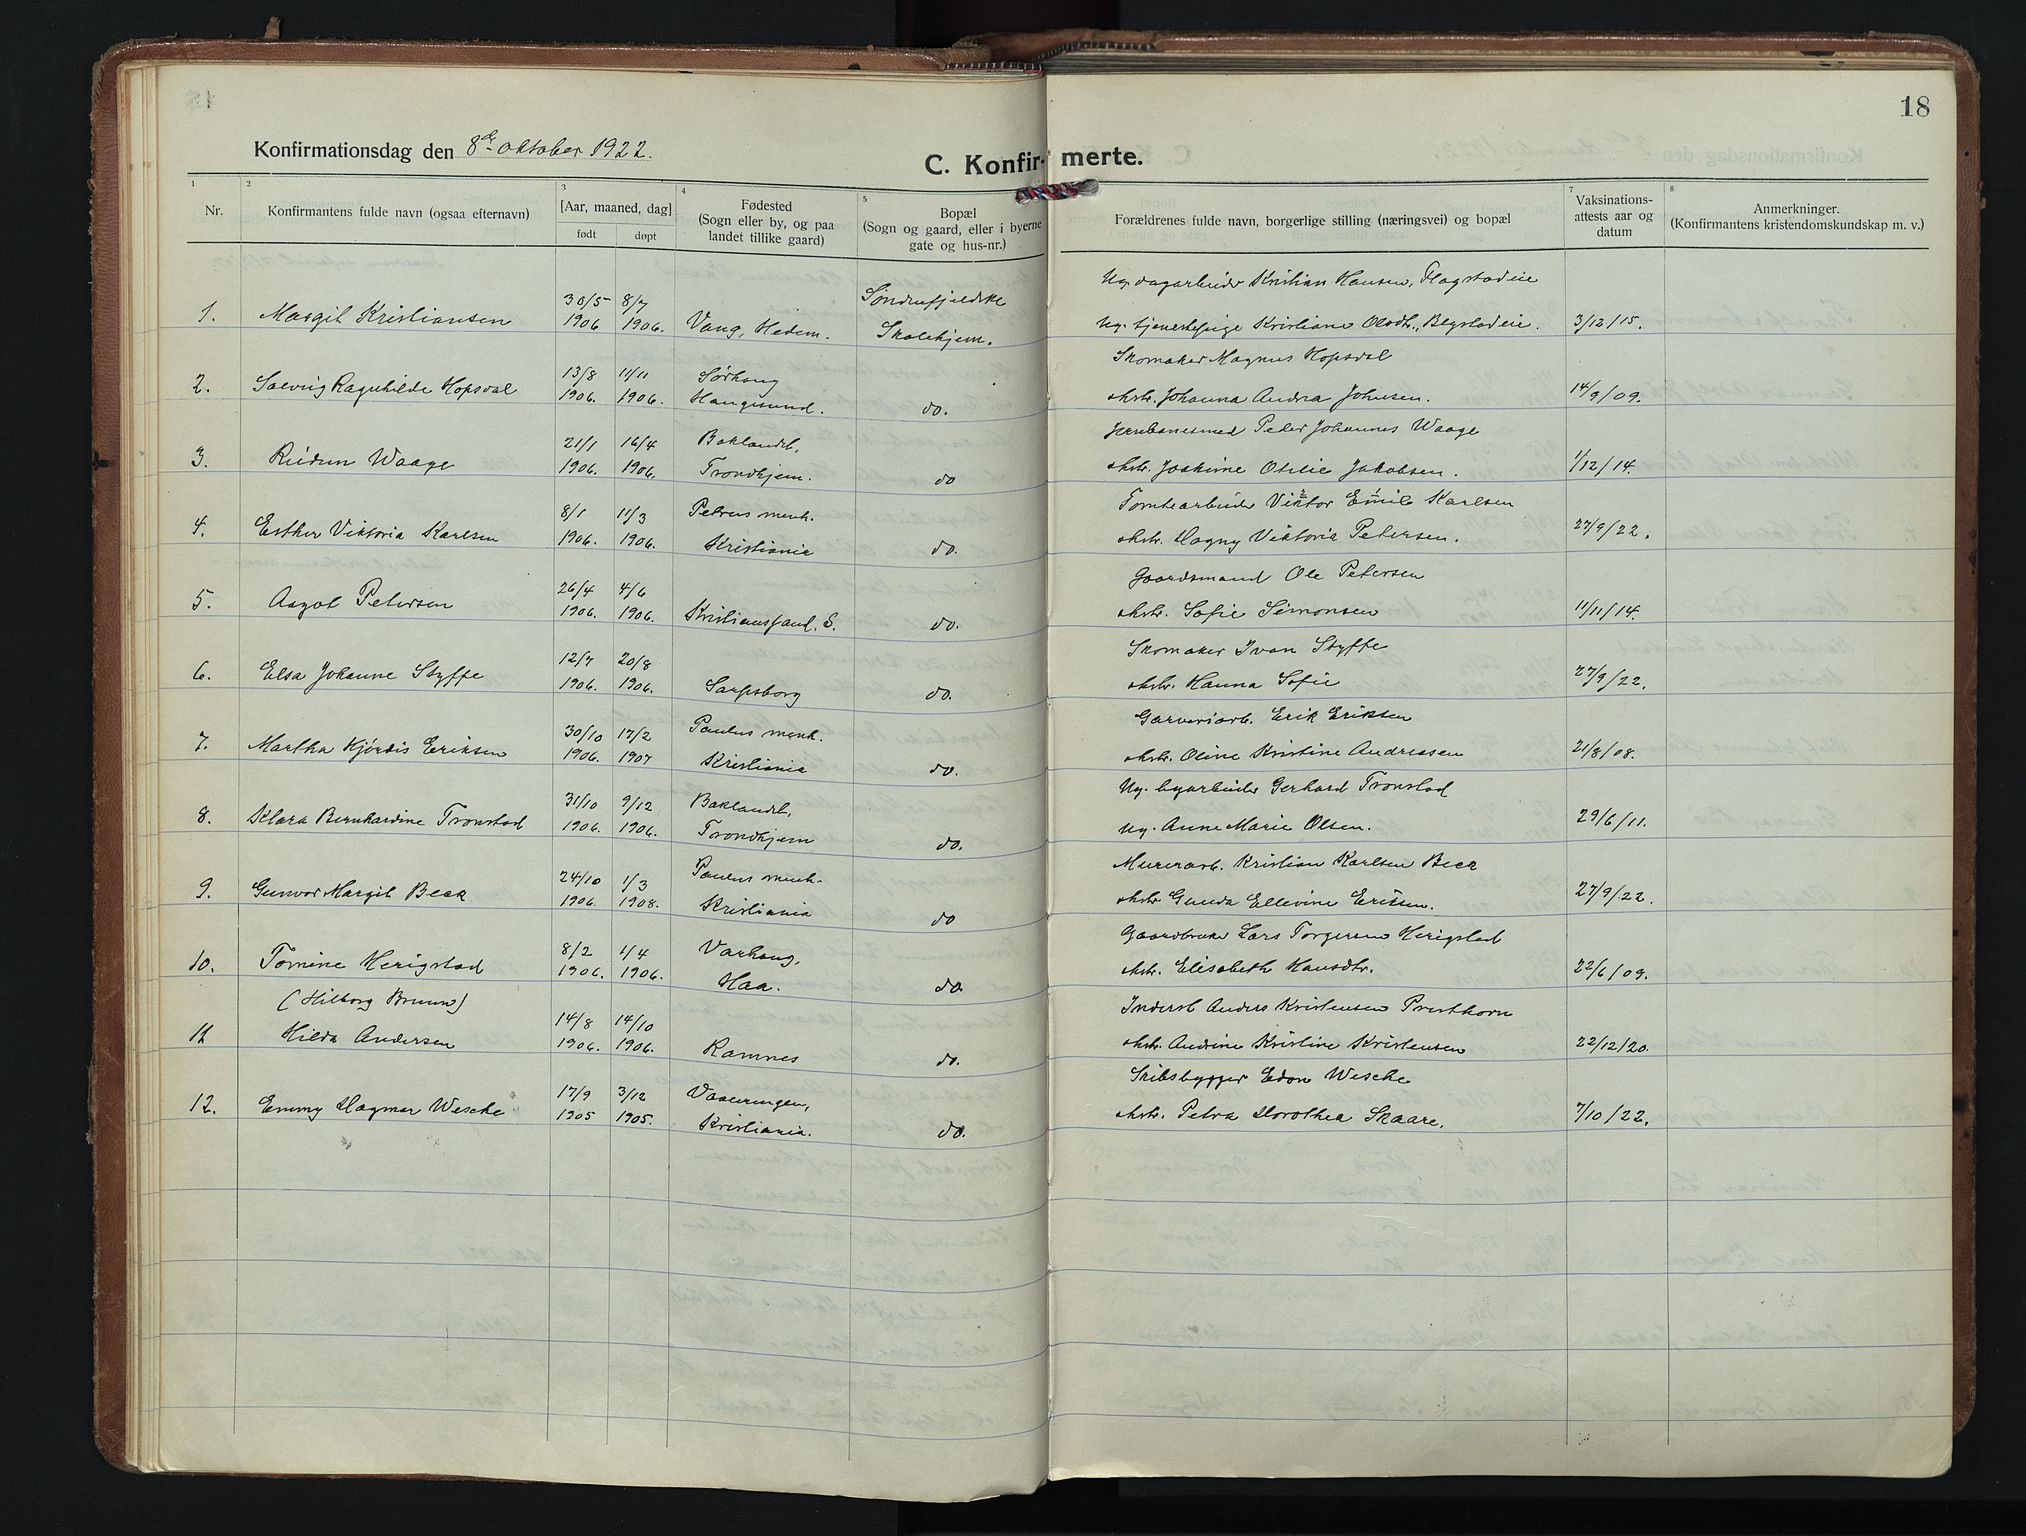 18
Konfirmationsdag den 8de oktober 1922.
C. Konfirmerte.
1 2 3 4 5 7 8
Nr.
Konfirmantens fulde navn (ogsaa efternavn)
[Aar, maaned, dag]
født døpt
Fødested
(Sogn eller by, og paa
landet tillike gaard)
Bopæl
(Sogn og gaard, eller i byerne
gate og hus-nr.)
Forældrenes fulde navn, borgerlige stilling (næringsvei) og bopæl
Vaksinations-
attests aar og
datum
Anmerkninger.
(Konfirmantens kristendomskundskap m. v.)
30/5 8/7 Søndenfjeldske Ug. dagarbeider Kristian Hansen, Flagstadeie
1. Margit Kristiansen 1906 1906. Vang, Hedem. Skolehjem. Ug. tjenestepige Kristiane Olsdtr., Blystadeie. 3/12/15.
13/8 11/11 Sørhaug Skomaker Magnus Hopsdal
2. Solveig Ragnhilde Hopsdal 1906. 1906. Haugesund. do. ektr. Johanna Andrea Johnsen. 14/9/09.
21/1 16/4 Baklandet, Jernbanesmed Peder Johannes Waage
3. Reidun Waage 1906. 1906. Trondhjem. do ektr. Joakime Otilie Jakobsen. 1/12/14.
8/1 11/3 Petrus menh. Tomtearbeider Viktor Emil Karlsen
4. Esther Viktoria Karlsen 1906. 1906. Kristiania do. ektr. Dagny Viktoria Petersen. 27/9/22.
26/4 4/6 Gaardsmand Ole Petersen
5. Aagot Petersen 1906. 1906. Kristianssand. S. do. ektr. Sofie Simonsen 11/11/14.
12/7 20/8 Skomaker Ivan Styffe
6. Elsa Johanne Styffe 1906. 1906. Sarpsborg do. ektr. Hanna Sofie 27/9/22.
30/10 17/2 Paulus menh. Garveriarb. Erik Eriksen
7. Martha Hjørdis Eriksen 1906. 1907 Kristiania do. ektr. Oline Kristine Andreasen 21/8/08.
31/10 9/12 Baklandet, Ug. byarbeider Gerhard Tronstad
8. Klara Bernhardine Tronstad 1906. 1906. Trondhjem do. Ug. Anne Marie Olsen. 29/6/11.
24/10 1/3 Paulus menh. Murerarb. Kristian Karlsen Beck
9. Gunvor Margit Beck 1906. 1908. Kristiania do ektr. Gunda Ellevine Eriksen. 27/9/22.
8/2 1/4 Varhaug, Gaardbruker Lars Torgersen Herigstad
10. Tomine Herigstad 1906. 1906. Haa. do. ektr. Elisabeth Hansdtr. 22/6/09.
(Hilborg Bruun) 14/8 14/10 Inderst Anders Kristensen Presthorn
11 Hilda Andersen 1906. 1906. Ramnes do. ektr. Andrine Kristine Kristensen 22/12/20.
17/9 3/12 Vaaleringen, Skibsbygger Edon Wesche
12. Emmy Dagmar Wesche 1905 1905. Kristiania. do. ektr. Petra Dorothea Skaare. 7/10/22.